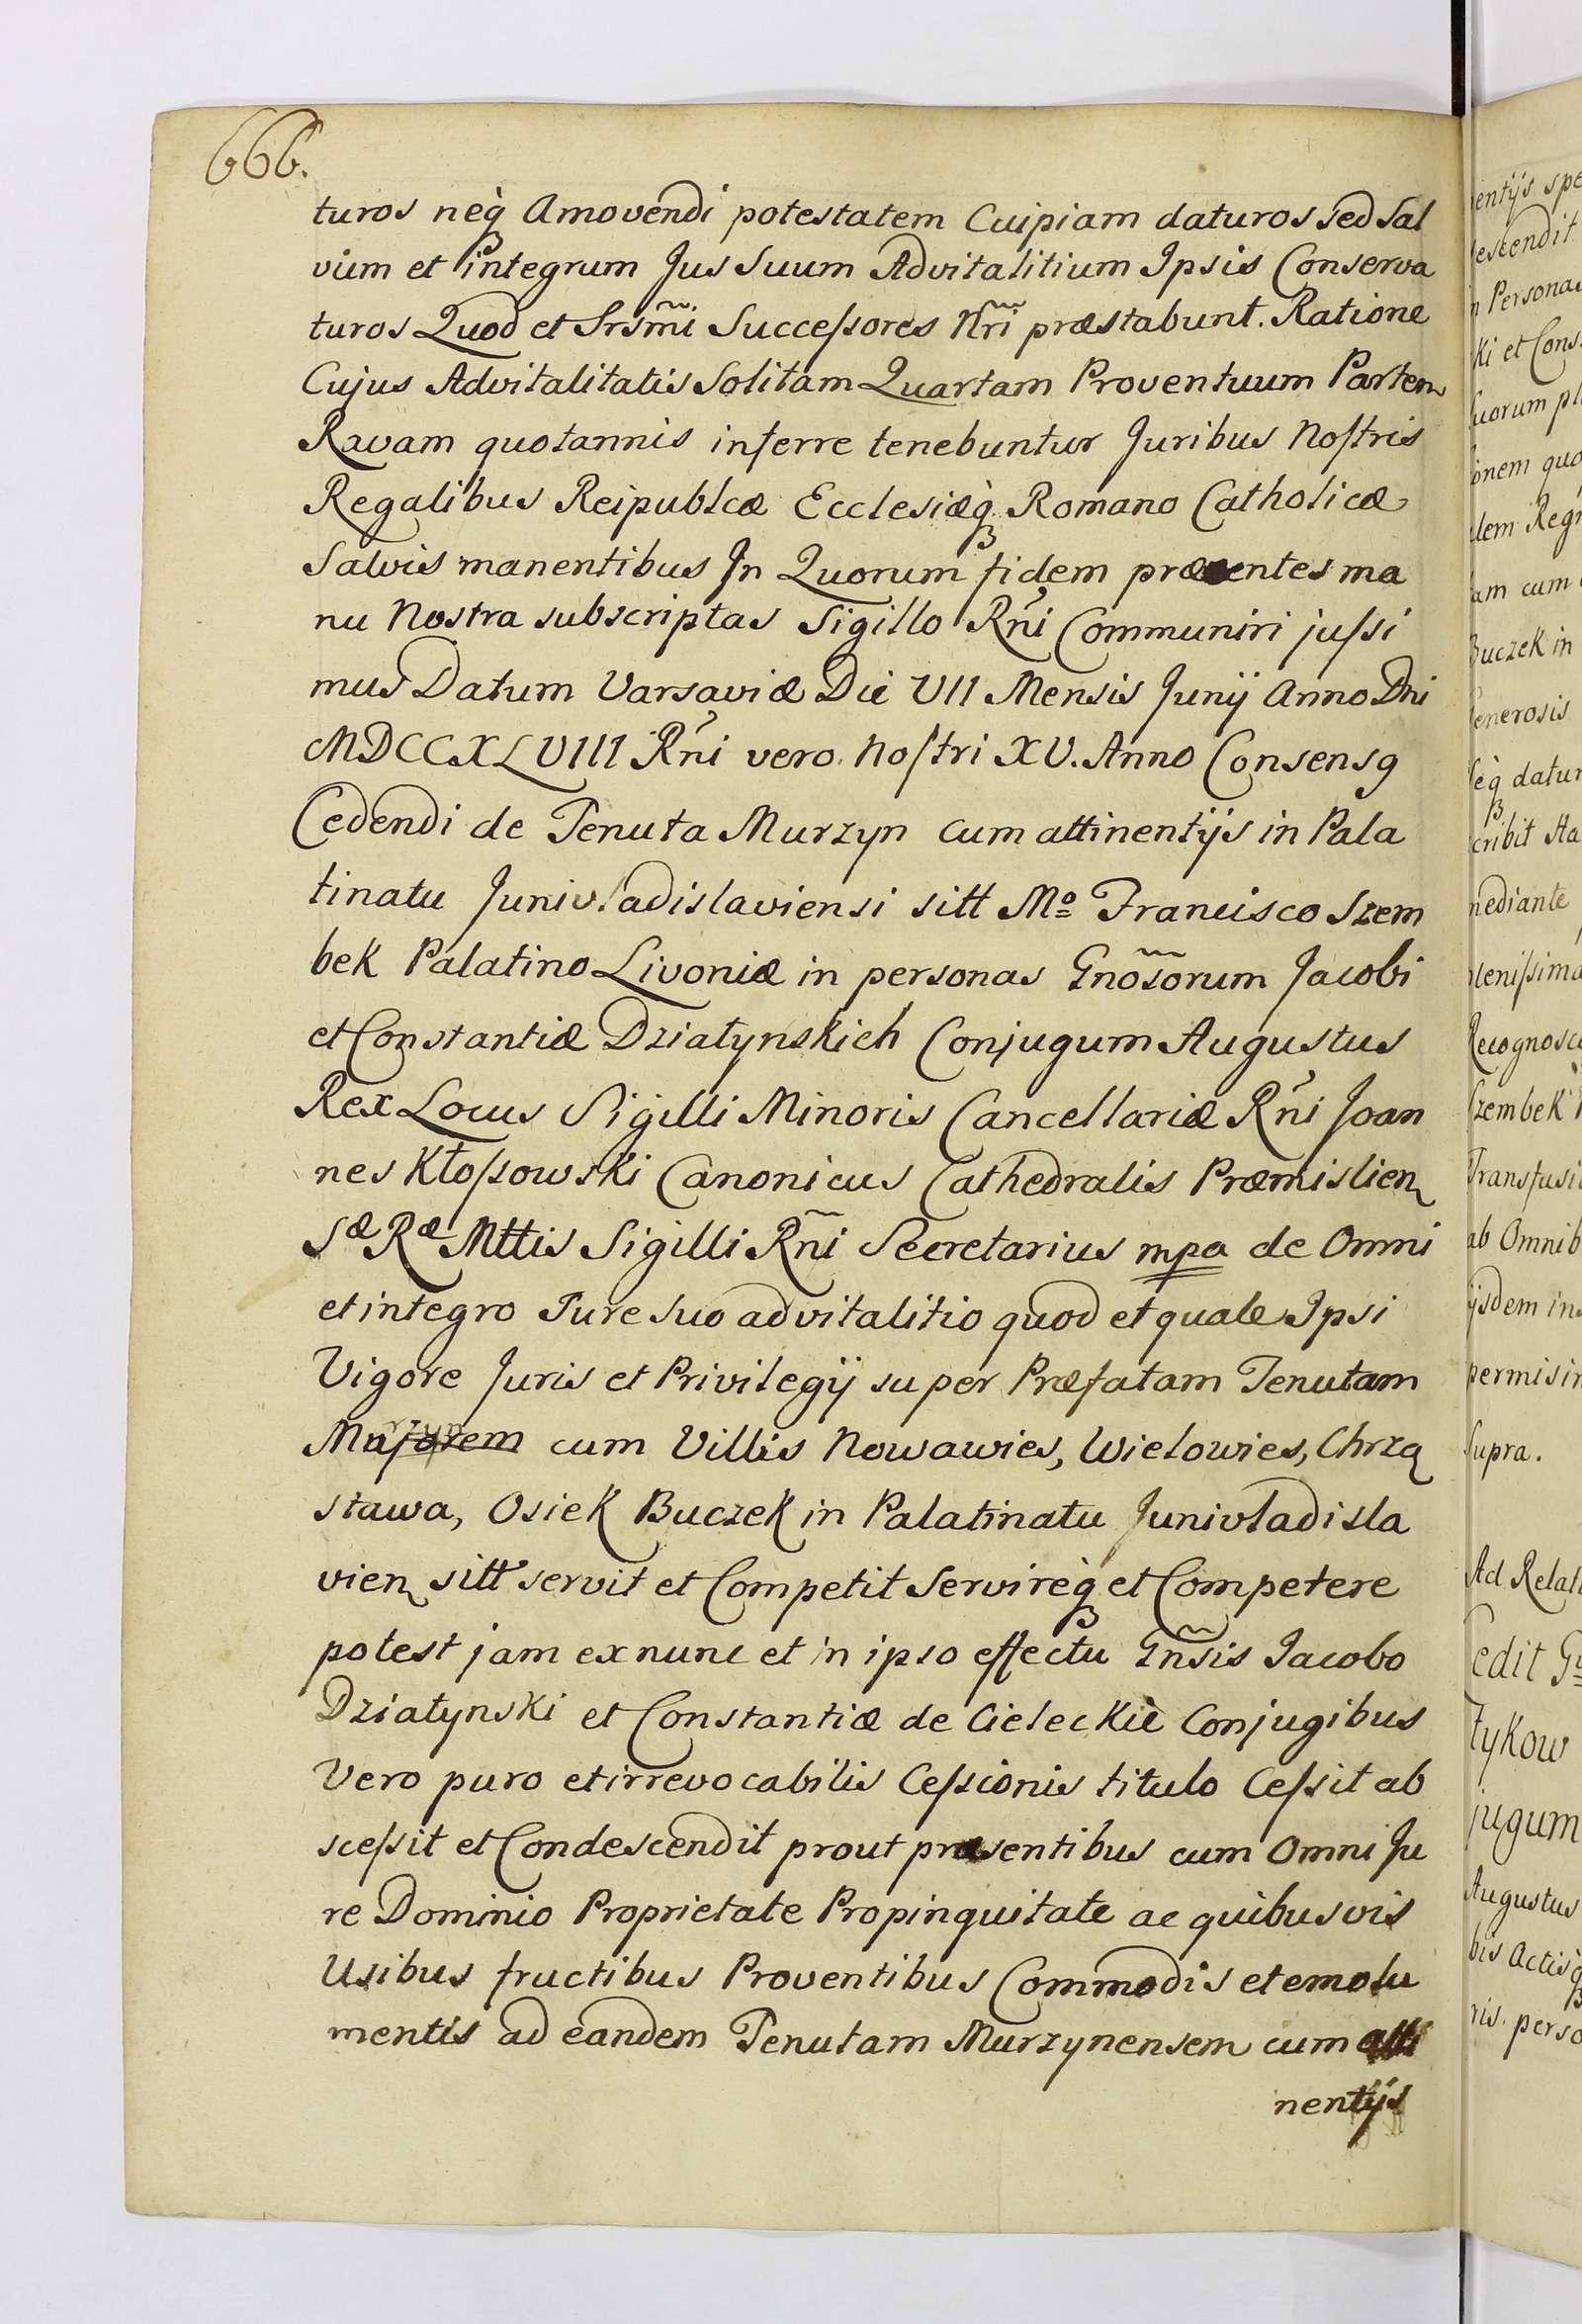 666.
turos neq́ꝫ Amovendi potestatem Cuipiam daturos sed Sal
vum et integrum Jus Suum Advitalitium Ipsis Conserva
turos Quod et Srsm̃i Succeſsores Nr̃i præstabunt. Ratione
Cujus Advitalitatis Solitam Quartam Proventuum Partem
Ravam quotannis inferre tenebuntur Juribus Noſtris
Regalibus Reipublcæ Ecclesiæq́ꝫ Romano Catholicæ
Salvis manentibus In Quorum fidem præsentes ma
nu Nostra subscriptas Sigillo Rñi Communiri juſsi
mus Datum Varsaviæ Die VII Mensis Junÿ Anno Dni
MDCCXLVIII Rñi vero Noſtri XV. Anno Consensꝯ
Cedendi de Tenuta Murzyn cum attinentÿs in Pala
tinatu Junivladislaviensi sitt Mº Francisco Szem
bek Palatino Livoniæ in personas Gnõsorum Jacobi
et Constantiæ Działynskich Conjugum Augustus
Rex Locus Sigilli Minoris Cancellariæ Rñi Joan
nes Kłoſsowski Canonicus Cathedralis Præmislien
Sæ Ræ Mttis Sigilli Rñi Secretarius mpa de Omni
et integro Jure Suo advitalitio quod et quale Ipsi
Vigore Juris et Privilegÿ super Præfatam Tenutam
Murzyn cum Villis Nowawies, Wielowies, Chrzą
stawa, Osiek Buczek in Palatinatu Junivladisla
vien sitt servit et Competit Servireq́ꝫ et Competere
potest jam ex nunc et in ipso effectu Gñsis Jacobo
Działynski et Constantiæ de Cieleckie Conjugibus
Vero puro et irrevocabilis Ceſsionis titulo Ceſsit ab
sceſsit et Condescendit prout præsentibus cum Omni Ju
re Dominio Proprietate Propinquitate ac quibusvis
Usibus fructibus Proventibus Commodis et emolu
mentis ad eandem Tenutam Murzynensem cum atti
nentÿs